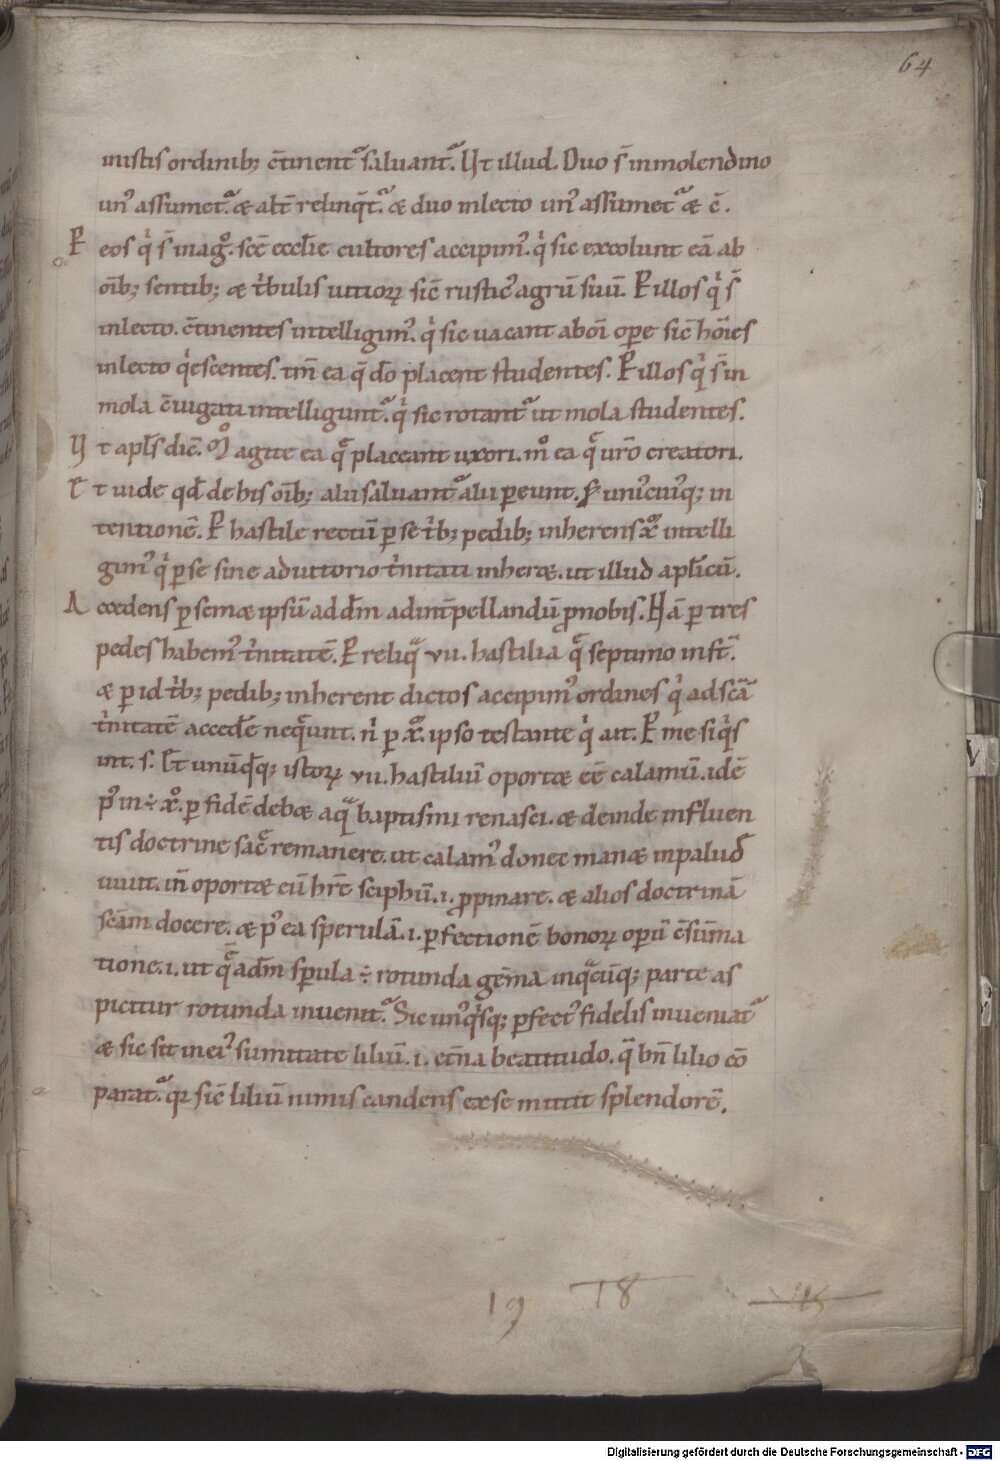 64
inistis ordinib; c̄tinent᷑ saluant᷑. Ut illud. Duo s̄ inmolendino
un᾿ assumet᷑ & alt̄ relinq̄t᷑. & duo inlecto un᾿ assumet᷑ & c̄.
P eos qͥ s̄ inagͦ. scē eccl̄ie cultores accipim᾿. qͥ sic excolunt eā ab
oīb; sentib; & tͥbulis uitioꝝ sic̄ rustic᾿ agrū suū. P illos qͥ s̄
inlecto. c̄tinentes intelligim᾿. qͥ sic uacant ab oī oꝑe sic̄ hōies
inlecto qͥescentes. tm̄ ea q̄ dō placent studentes. P illos qͥ s̄ in
mola c̄iugati intelligunt᷑. qͥ sic rotant᷑ ut mola studentes.
Ut apl̄s dic̄. Nͦ agite ea q̄ placeant uxori. mͦ ea q̄ ur̄o creatori.
Et uide qd̄ de his oīb; alii saluant᷑ alii ꝑeunt. S; uni᾿cui᾿q; in
tentionē. P hastile rectū ꝑ se tͥb; pedib; inherens xͦ intelli
gim᾿ qͥ ꝑ se sine adiutorio tͥnitati inher&. ut illud apl̄icū.
Accedens ꝑ sem& ipsū ad dm̄ ad int̄pellandū ꝓ nobis. Hā ꝑ tres
pedes habem᾿ tͥnitatē. P reliqͣ vii. hastilia q̄ septimo inst̄.
& ꝑ id tͥb; pedib; inherent dictos accipim᾿ ordines qͥ ad scā
tͥnitatē acced̄e neq̄unt. nͥ ꝑ xͦ. ipso testante qͥ ait. P me siqͥs
int. s. Et unūqd̄q; istoꝝ vii. hastiliū oport& eē calamū. idē
pͥm ÷ xͦ. ꝑ fidē deb& aqͣ baptismi renasci. & deinde influen
tis doctrine sac̄ remanere. ut calam᾿ donec man& inpalud̄
uiuit. in̄ oport& eū hr̄e sciphū. i. ꝓpinare. & alios doctrinā
scām docere. & p᾿ ea sperulā. i. ꝑfectionē bonoꝝ opū c̄sūma
tione. i. ut q̄ adm̄ sꝑula ÷ rotunda gēma inqͣcūq; parte as
picitur rotunda inuenit᷑. Sic un᾿qͥsq; ꝑfect᾿ fidelis inueniat᷑
& sic sit inei᾿ sumitate liliū. i. et̄na beatitudo. q̄ bn̄ lilio cō
parat᷑. qꝛ sic̄ liliū nimis candens exse mittit splendorē.
19 18
Digitalisierung gefördert durch die Deutsche Forschungsgemeinschaft - DFG